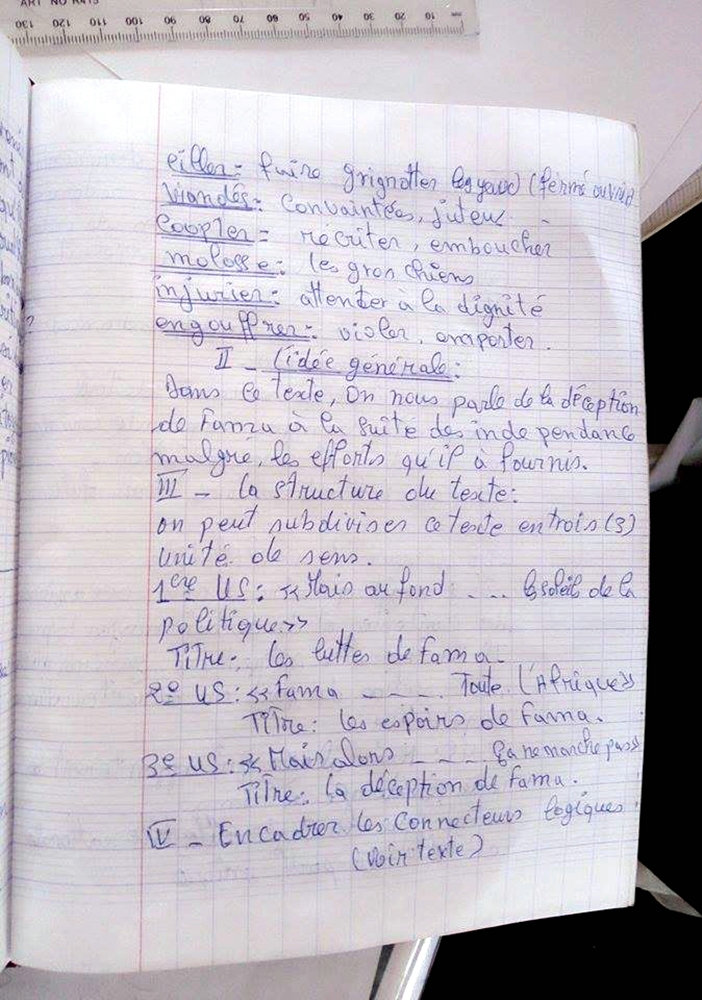 ART NO R415
130 120 110 100 90 80 70 60 50 40 30 20 10
ciller= faire grignotter les yeux) (fermé ouvrir)
Viandés: Convaintées, juteux
Coopter= récriter, emboucher
molosse: les gros chiens
injurier: attenter à la dignité
engouffrer: violer, emporter.
II - L'idée générale:
Dans ce texte, on nous parle de la déception
de Fama à la suite des indépendance
malgré, les efforts qu'il à fournis.
III - la structure du texte:
on peut subdiviser ce texte en trois (3)
unité de sens.
1ere US: << Mais au fond ... le soleil de la
politique>>
Titre: les luttes de fama.
2e US: << Fama ---- Toute l'Afrique>>
Titre: les espoirs de fama.
3e US: << Mais alors ---- ça ne marche pas>>
Titre: la déception de fama.
IV - Encadrer les connecteurs logiques.
(voir texte)